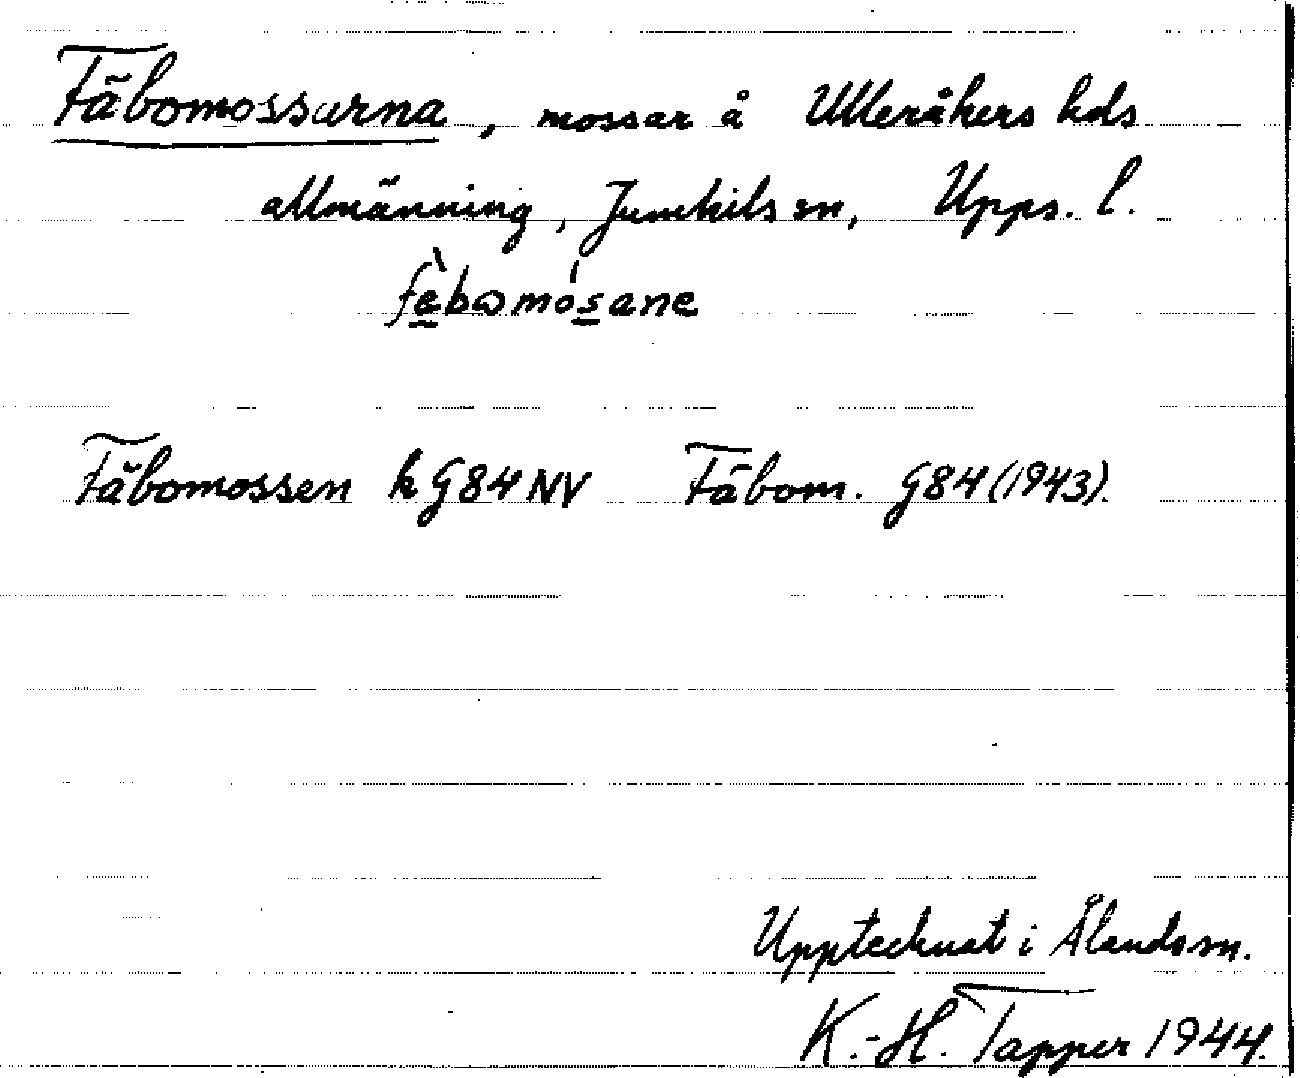 Fäbomossarna, mossar å Ulleråkers hds
allmänning, Jumkils sn, Upps. l.
fè̱bωmós̱ane
Fäbomossen k G84 NV Fäbom. G84 (1943).
Upptecknat i Ålands sn.
K.-H. Tapper 1944.